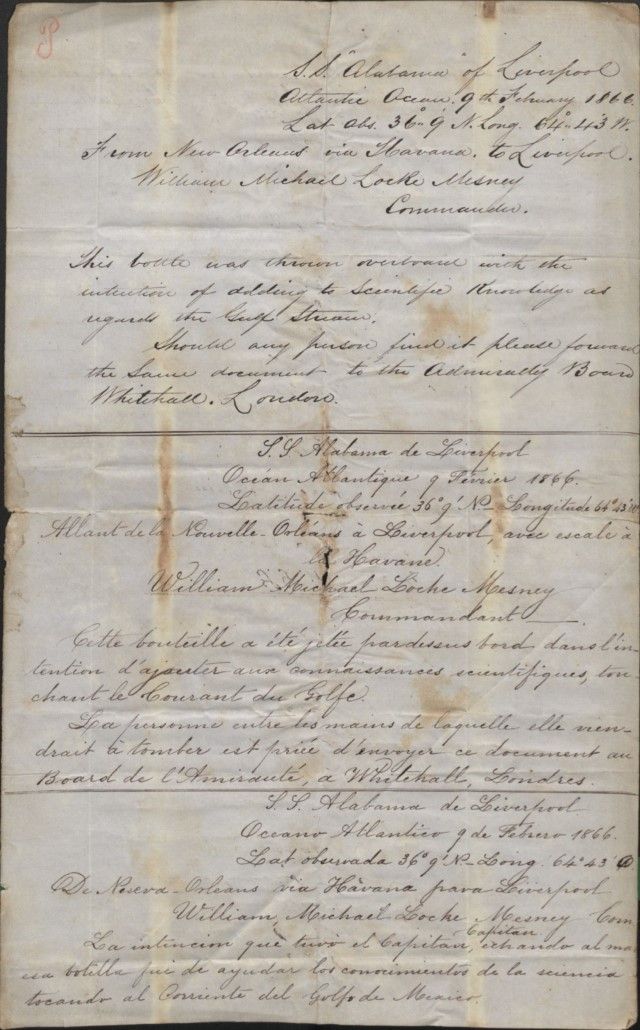 S.S. "Alabama" of Liverpool
Atlantic Ocean. 9th February 1866.
Lat Obs. 36° 9' N. Long. 64° 43' W.
From New Orleans via Havana. to Liverpool.
William Michael Locke Mesney
Commander.
This bottle was thrown overboard with the
intention of adding to Scientific Knowledge as
regards the Gulf Stream.
Should any person find it please forward
the Same document to the Admiralty Board
Whitehall. London.
S.S. Alabama de Liverpool
Océan Atlantique 9 Février 1866.
Latitude observée 36° 9' N— Longitude 64° 43' W
Allant de la Nouvelle-Orléans à Liverpool, avec escale à
la Havane.
William Michael Locke Mesney
Commandant
Cette bouteille a été jetée pardessus bord dans l'in-
tention d'ajouter aux connaissances scientifiques, tou-
chant le Courant du Golfe.
La personne entre les mains de laquelle elle vien-
drait à tomber est priée d'envoyer ce document au
Board de l'Amirauté, à Whitehall, Londres.
S.S. Alabama de Liverpool
Oceano Atlantico 9 de Febrero 1866.
Lat observada 36° 9' N— Long. 64° 43' O
De Nueva-Orleans via Hàvana para Liverpool
William Michael Locke Mesney Com
Capitan
La intencion que tuvò el Capitan, echando al mar
esa botilla fuè de ayudar los conocimientos de la sciencia
tocando al Corriente del Golfo de Mexico.